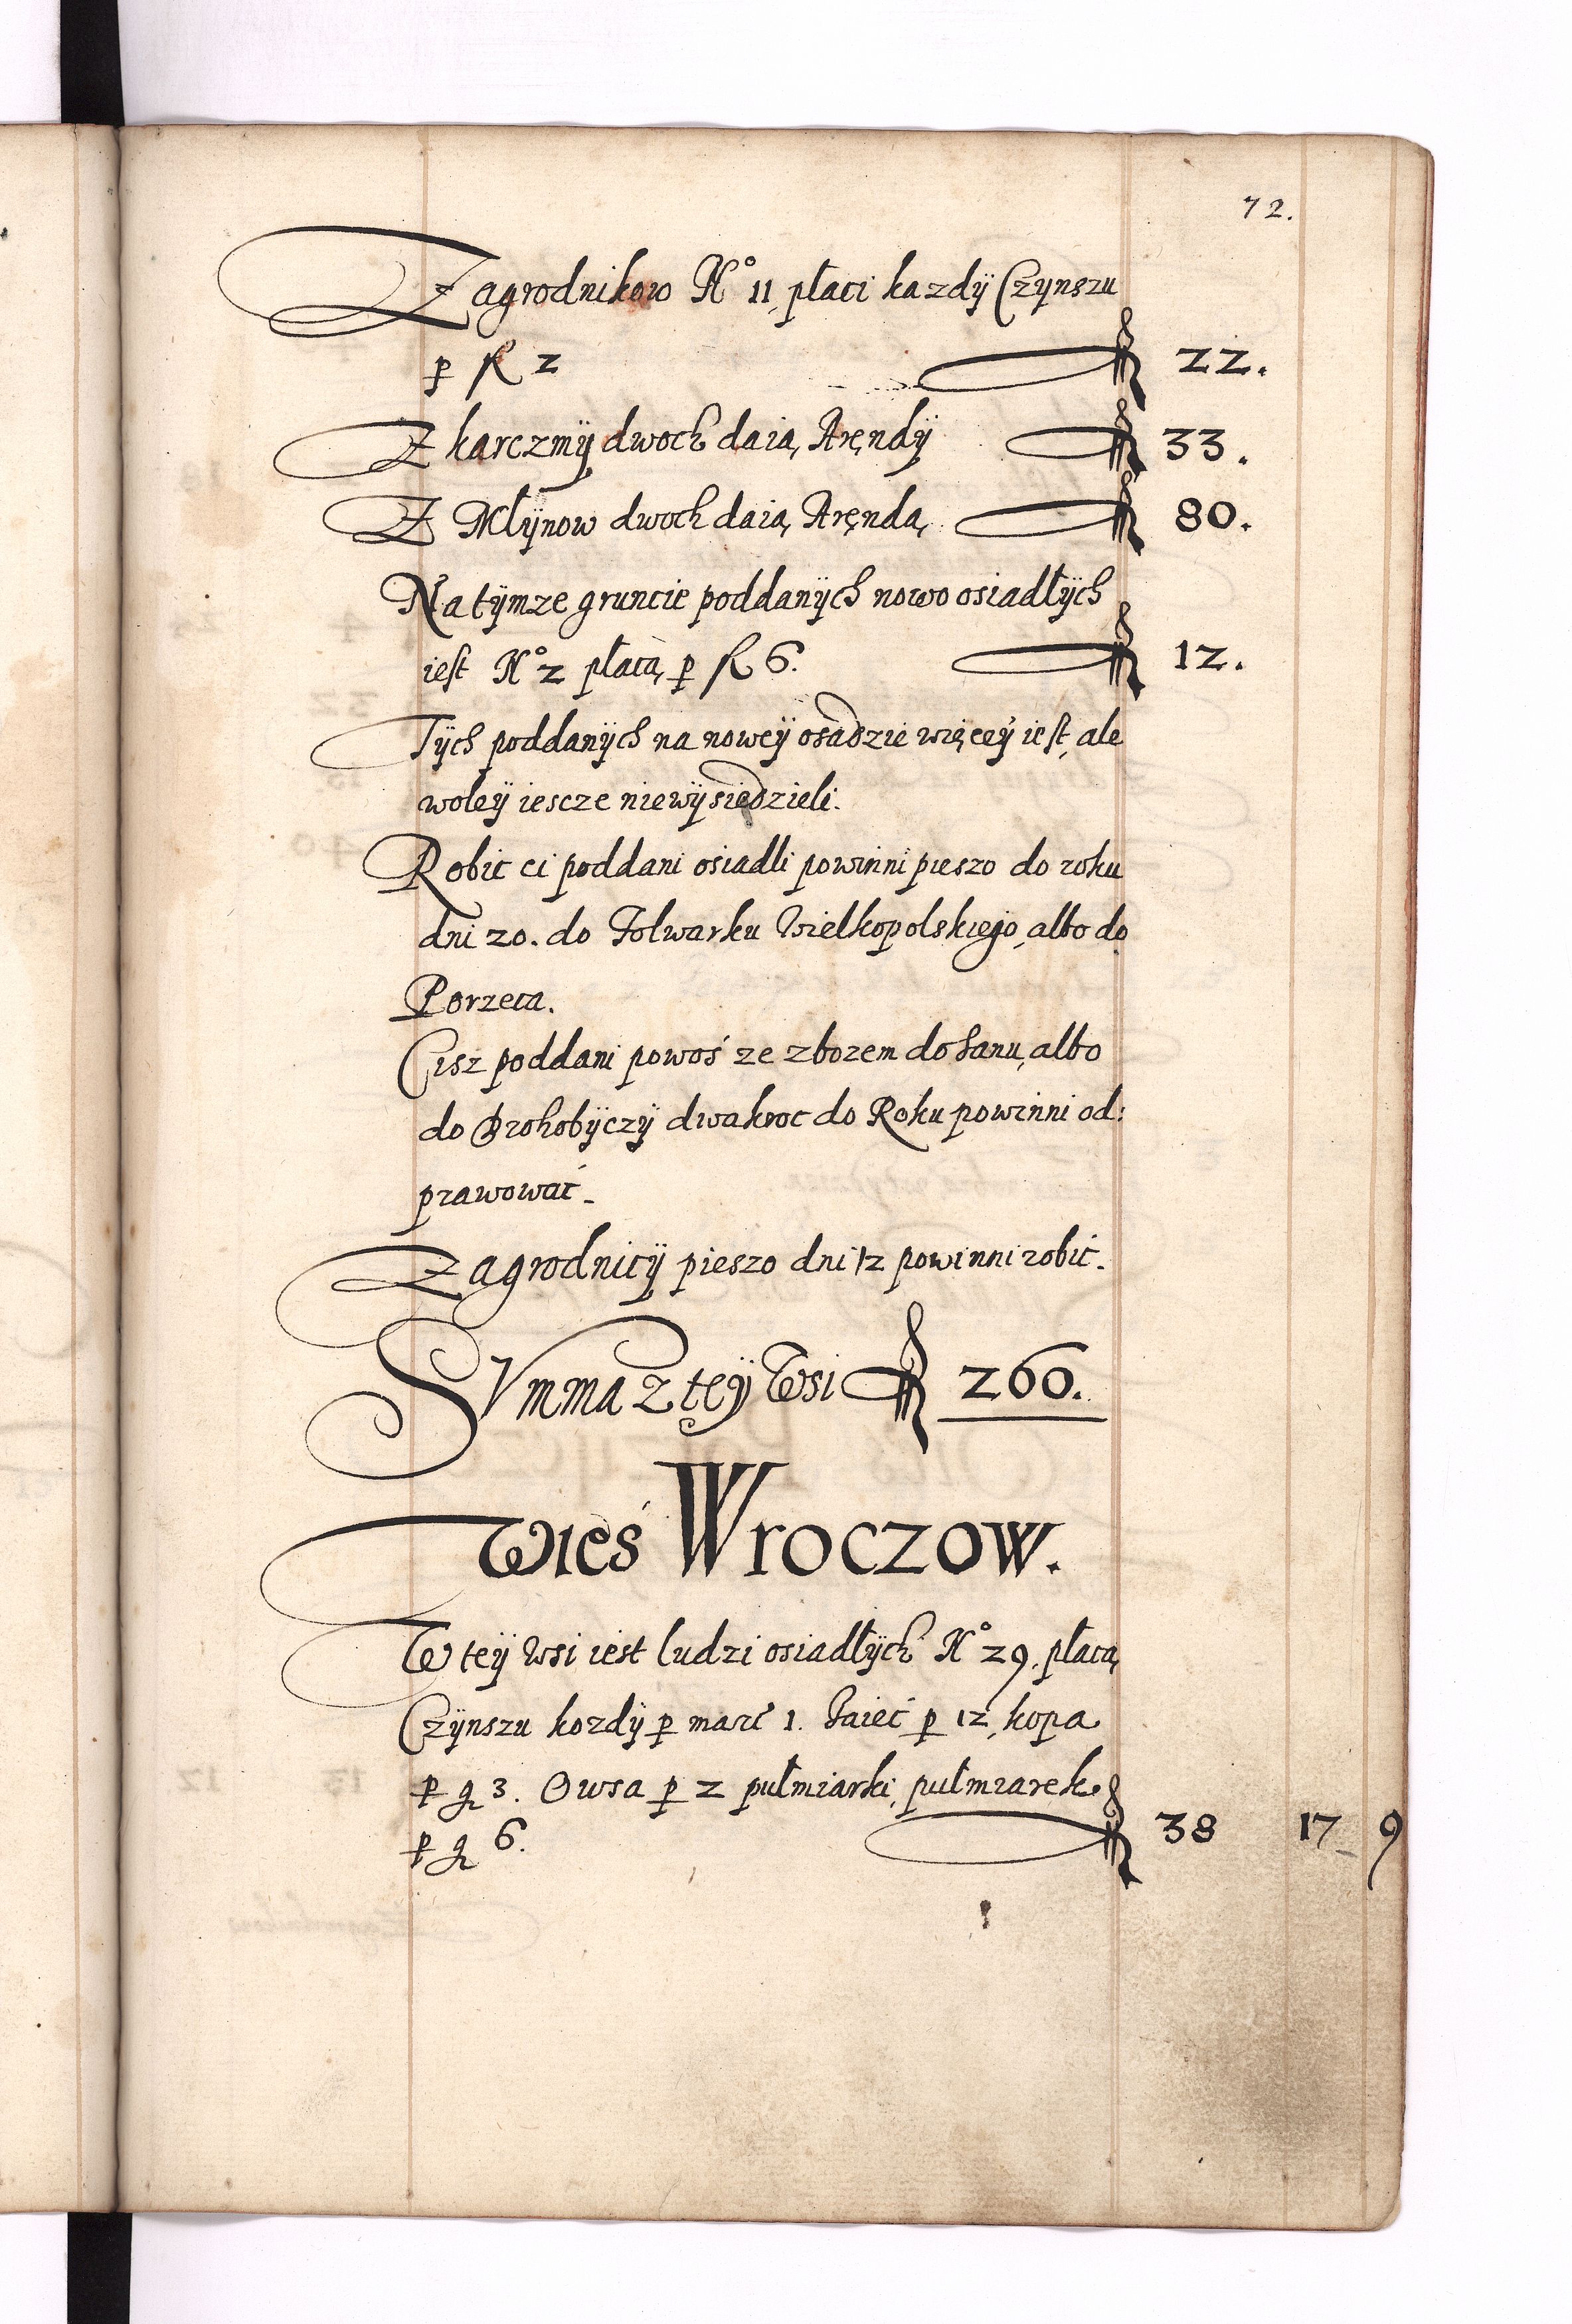 72.
Zagrodnikow No 11, płaci kazdÿ Czynszu
p fl 2 fl 22.
Z karczmÿ dwoch daią Aręndÿ fl 33.
Z Młÿnow dwoch daią Aręndą fl 80.
Na tÿmze gruncie poddanÿch nowo osiadłÿch
iest No 2 płacą p fl 6. fl 12.
Tÿch poddanÿch na noweÿ osadzie więceÿ iest, ale
woleÿ iescze niewÿsiedzieli.
Robic ci poddani osiadli powinni pieszo do roku
dni 20. do Folwarku Wielkopolskiego, albo do
Porzeca.
Cisz poddani powoś ze zbozem do Sanu, albo
do Drohobÿczÿ dwakroc do Roku powinni od:
prawować.
Zagrodnicÿ pieszo dni 12 powinni robić.
SVmma z teÿ Wsi fl 260.
Wieś Wroczow.
W teÿ Wsi iest ludzi osiadłÿch No 29. płacą
Czÿnszu kozdÿ p marc 1. Jaiec p 12, kopa
p g 3. Owsa p 2 pułmiarki, pułmiarek
p g 6. fl 38 17 9